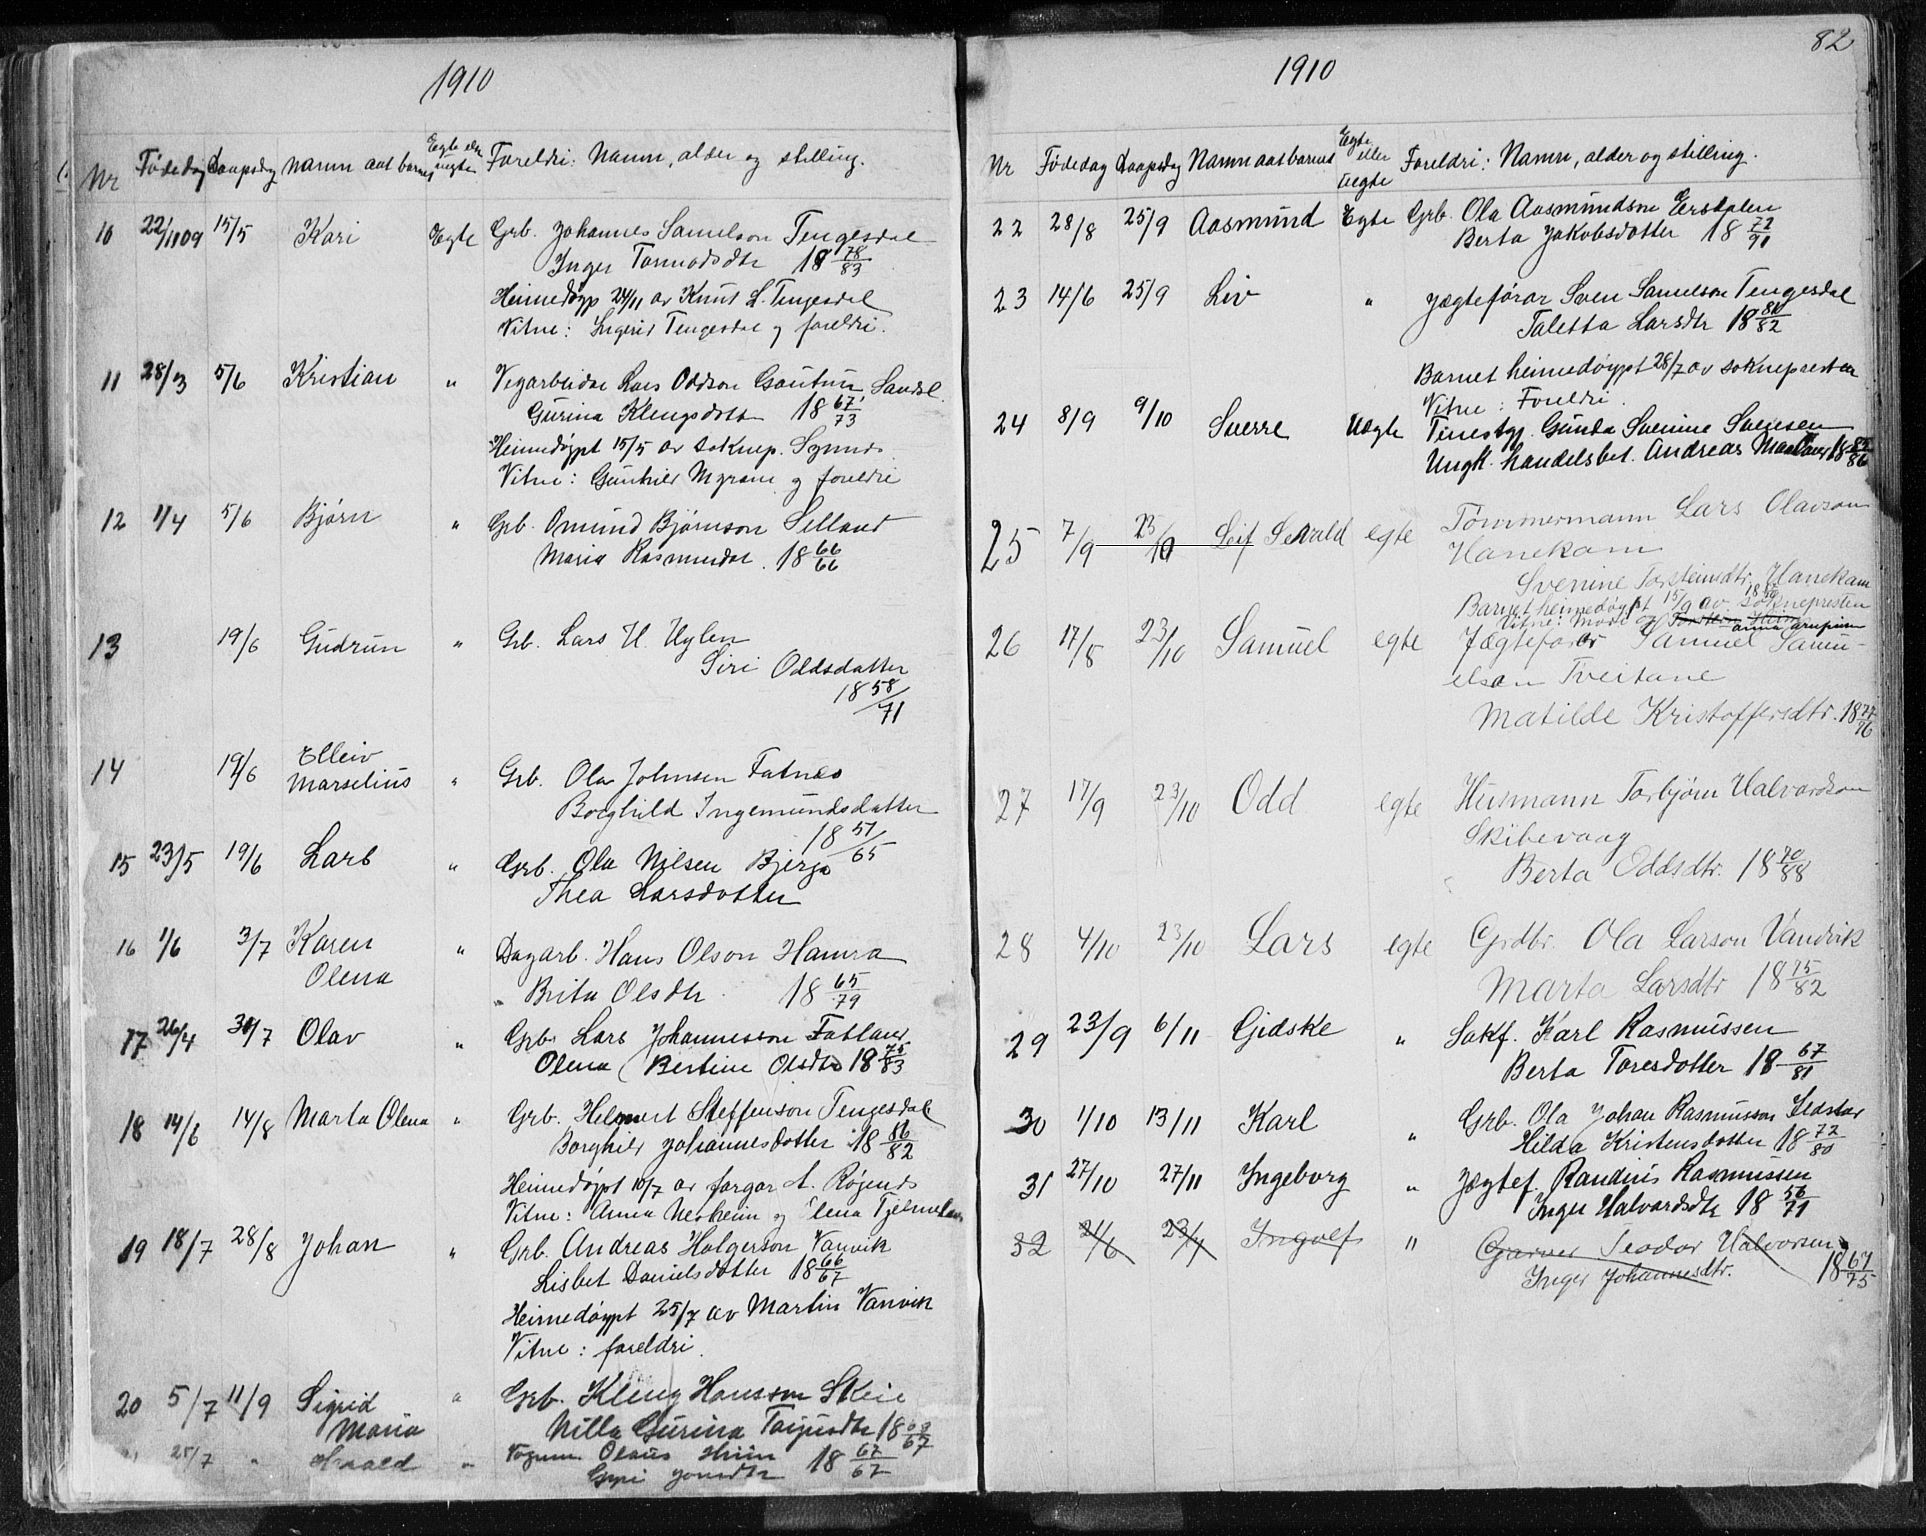 1910
Nr Fødedag Daapsdag Namn aat barnet Egte eller uegte Foreldri: Namn, alder og stilling.
10 22/11 09 15/5 Kari Egte Grb. Johannes Samelson Tengesdal
Inger Tormodsdtr 18 78/83
Heimedøypt 24/11 av Knut L. Tengesdal
Vitne: Ingerid Tengesdal og foreldri.
11 28/3 5/6 Kristian " Vegarbeidar Lars Oddson Gautun, Sandsl.
Gurina Klengsdotter 18 67/73
Heimedøypt 15/5 av soknep.
Vitne: Gunhild og foreldri
12 1/4 5/6 Bjørn " Grb. Omund Bjørnson Selland
Maria Rasmusdtr. 18 66/66
13 19/6 Gudrun " Grb. Lars H. Hylen
Siri Oddsdatter
18 58/71
14 19/6 Elleiv
Marselius " Grb. Ola Johnsen Fatnes
Borghild Ingemundsdatter
18 57/65
15 23/5 19/6 Lars " Grb. Ola Nilsen Bjerga
Thea Larsdotter
16 1/6 3/7 Karen " Dagarb. Hans Olson Hamra
Olena " Brita Olsdtr 18 65/79
17 26/4 30/7 Olav " Grb. Lars Johannesson Fatland
Olena Bertine Olsdtr 18 75/83
18 14/6 14/8 Marta Olena " Grb. Helmert Steffenson Tengesdal
Borghild Johannesdotter 18 86/82
Heimedøypt 10/7 av A.
Vitne: Anna Nesheim og Elena
19 18/7 28/8 Johan " Grb. Andreas Holgerson Vanvik
Lisbet Danielsdotter 18 66/67
Heimedøypt 25/7 av Martin Vanvik
Vitne: foreldri.
20 5/7 11/9 Sigrid " Grb. Kleng Hansson Skeie
Maria Nilla Gurina
25/7 " Harald " Olaus
18 67/67
82
1910
Nr Fødedag Daapsdag Namn aat barnet Egte eller Uegte Foreldri: Namn, alder og stilling.
22 28/8 25/9 Aasmund Egte Grb. Ola Aasmundson Ersdalen
Berta Jakobsdotter 18 72/91
23 14/6 25/9 Liv " Jægteførar Sven Samelson Tengesdal
Taletta Larsdtr 18 80/82
Barnet heimedøypt 28/7 av soknepresten
Vitne: Foreldri.
24 8/9 9/10 Sverre Uegte Tenestgj. Gunda Svenine Svensen
Ungk. handelsbet. Andreas 18 85/86
25 7/9 23/10 Leif Sevald egte Tømmermann Lars Olavson
Hanekam
Svenine Torsteinsdtr. Hanekam
Barnet heimedøypt 15/9 av soknepresten
Vitne: Mor og
26 17/8 23/10 Samuel egte Jægtefører Samuel Samu-
elsen Tveitane
Matilde Kristoffersdtr. 18 77/76
27 17/9 23/10 Odd egte Husmann Torbjørn Halvardson
Skibevaag
Berta Oddsdtr. 18 70/88
28 4/10 23/10 Lars egte Grdbr. Ola Larson Vandvik
Marta Larsdtr 18 75/82
29 23/9 6/11 Gidske " Sakf. Karl Rasmussen
Berta Toresdotter 18 67/81
30 1/10 13/11 Karl " Grb. Ola Johan Rasmusson
Hilda Kristensdotter 18 72/80
31 27/10 27/11 Ingeborg " Jægtef. Randius Rasmussen
Inger Halvardsdtr 18 56/71
32 21/6 23/7 Ingolf " Garver Teodor Halvorsen
Inger Johannesdtr. 18 67/75